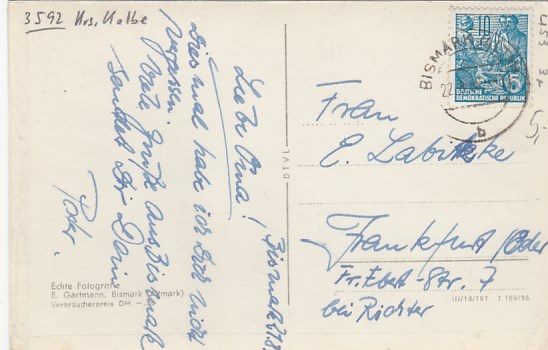 3592 Krs. Kalbe
Bismark 21.8.
Liebe Oma!
Dies mal habe ich Dich nicht
vergessen.
Viele Grüße aus Bismark
sendet Dir Dein
Peter.
Echte Fotografie
E. Gartmann, Bismark
Verbraucherpreis DM
DTVL
10
5
DEUTSCHE
DEMOKRATISCHE REPUBLIK
BISMARK
22.
b
Frau
E. Labitzke
Frankfurt/Oder
Fr. Ebert-Str. 7
bei Richter
III/19/197 T 189/56
5,-